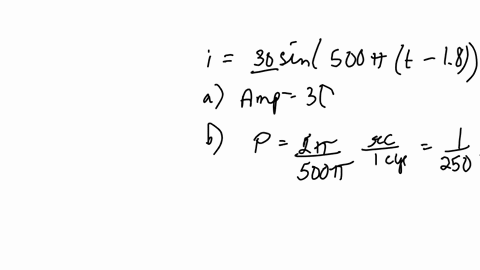 i = 30 sin( 500π (t - 1.8))
a) Amp = 30
b) P = 2π/500π sec/1 cyc = 1/250